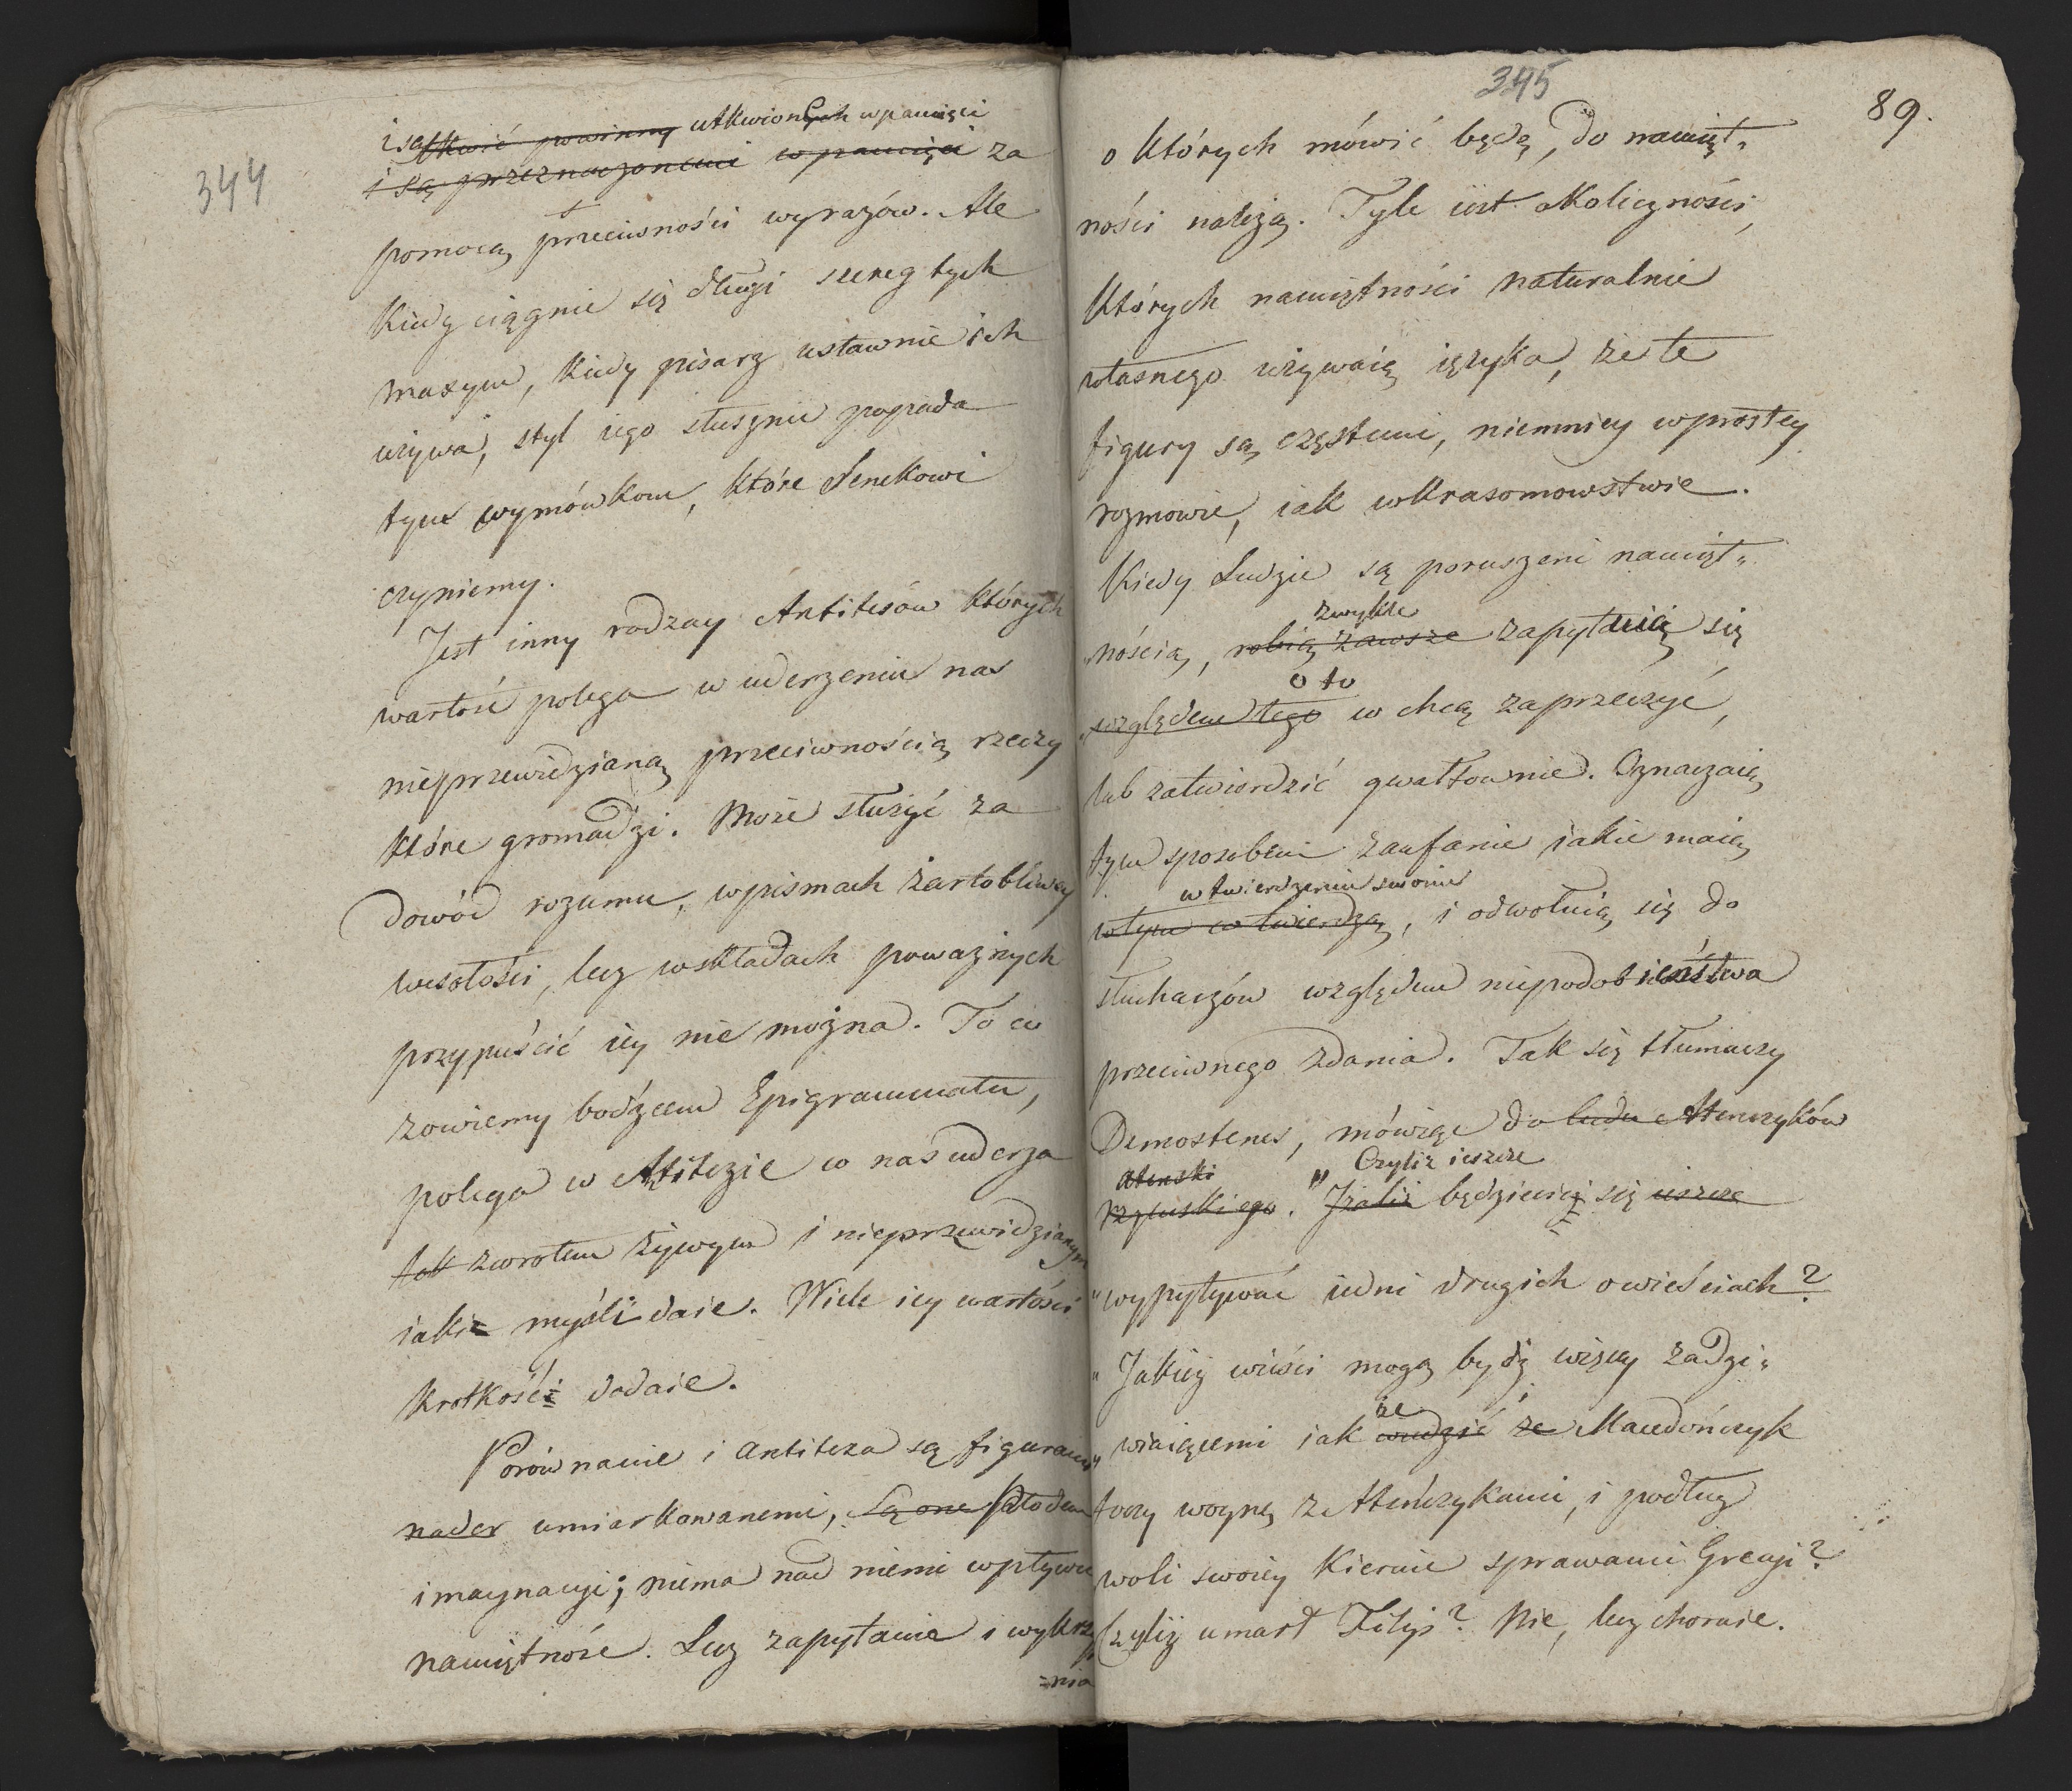 344
i są tkwić powinny utkwionych w pamięci
i są przeznaczonemi w pamięci za
pomocą przeciwności wyrazów. Ale
kiedy ciągnie się długi szereg tych
maxym, kiedy pisarz ustawnie ich
używa, styl iego słusznie popada
tym wymówkom, które Senekowi
czyniemy.
Jest inny rodzay Antitesów których
wartość polega w uderzeniu nas
nieprzewidzianą przeciwnością rzeczy
które gromadzi. Może służyć za
dowód rozumu, w pismach żartobliwey
wesołości, lecz w składach poważnych
przypuścić iey nie można. To co
zowiemy bodźcem Epigrammatu,
polega w Atitezie co nas uderza
tak zwrotem żywym i nieprzewidzianym
iakie myśli daie. Wiele iey wartości
krotkość dodaie.
Porównanie i antiteza są figurami
nader umiarkowanemi, Są one płodem
imaynacyi; niema nad niemi wpływu
namiętność. Lecz zapytania i wykrzy
=nia
345
89.
o których mówić będę, do namięt„
ności należą. Tyle iest okoliczności,
których namiętności naturalnie
własnego używaią ięzyka, że te
figury są częstemi, niemniey w prostey
rozmowie, iak w krasomowstwie.
Kiedy Ludzie są poruszeni namięt„
zwykle
„nością, robią zawsze zapytauią się
o to
względem tego co chcą zaprzeczyć,
lub zatwierdzić gwałtownie. Oznaczaią
tym sposobem zaufanie iakie maią
w twierdzeniu swoim
w tym co twierdzą, i odwołuią się do
słuchaczów względem niepodobieństwa
przeciwnego zdania. Tak się tłumaczy
Demostenes, mówiąc do ludu Ateńczyków
atenski „ Czyliż ieszcze
rzymskiego. "Izaliż będziecie się ieszcze
„wypytywać iedni drugich o wieściach?
„Jakież wieści mogą bydź więcey zadzi„
że
„wiaiącemi iak widzić że Macedończyk
toczy woynę z Ateńczykami, i podług
woli swoiey kieruie sprawami Grecyi?
Czyliż umarł Filip? Nie, lecz choruie.